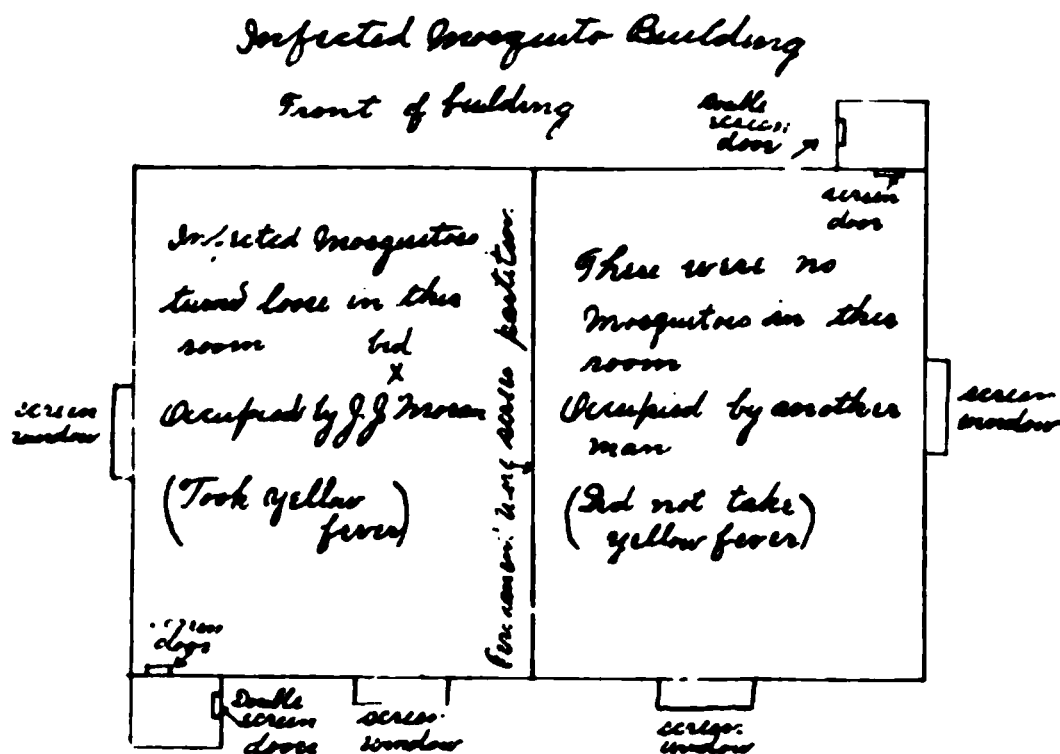 Infected Mosquito Building
Front of building
Double
screen
door
screen
door
Infected Mosquitoes
turned loose in this
room
bed
x
Occupied by J.J. Moran
(Took yellow
fever)
Permanent wire screen partition.
There were no
Mosquitoes in this
room
Occupied by another
man
(Did not take
yellow fever)
screen
window
screen
window
screen
door
Double
screen
doors
screen
window
screen
window